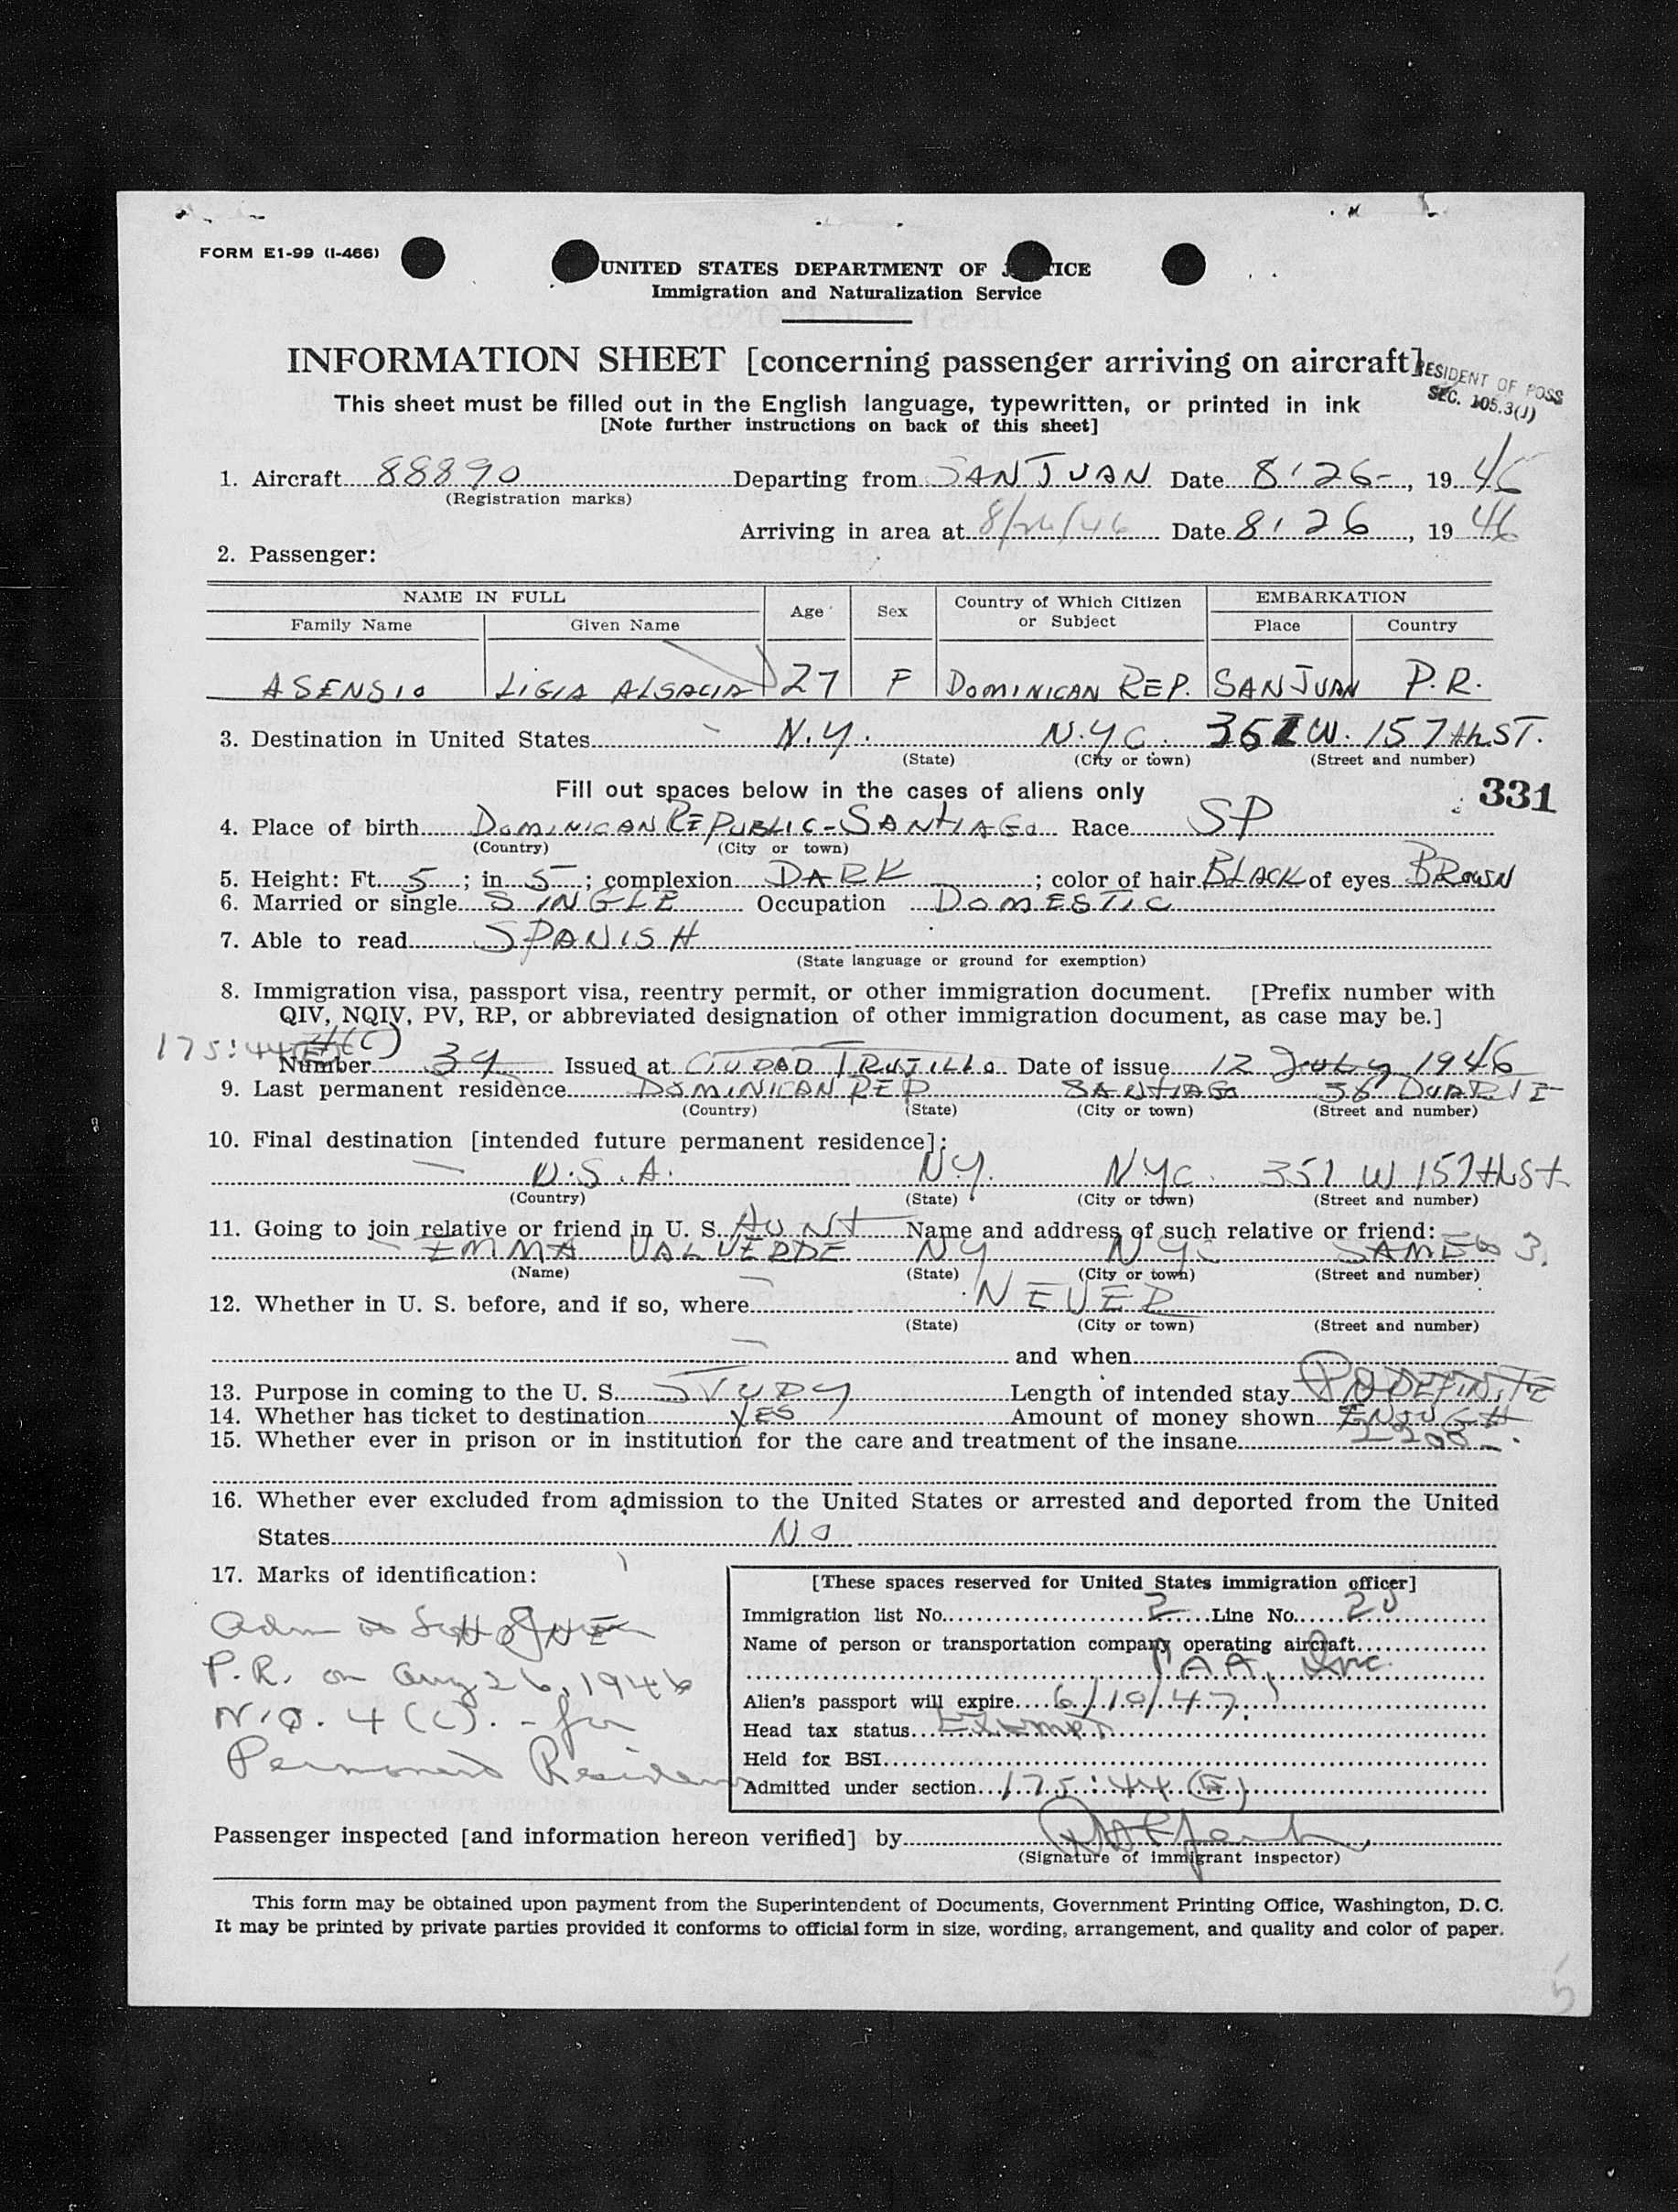 FORM E1-99 (I-466)
UNITED STATES DEPARTMENT OF J TICE
Immigration and Naturalization Service
INFORMATION SHEET [concerning passenger arriving on aircraft]
RESIDENT OF POSS
SEC. 105.3(J)
This sheet must be filled out in the English language, typewritten, or printed in ink
[Note further instructions on back of this sheet]
1. Aircraft 88890 Departing from SAN JUAN Date 8-26-, 19 46
(Registration marks)
Arriving in area at 8/26/46 Date 8-26, 19 46
2. Passenger:
NAME IN FULL Age Sex Country of Which Citizen or Subject EMBARKATION
Family Name Given Name Place Country
ASENSIO LIGIA ALSACIA 27 F DOMINICAN REP. SAN JUAN P.R.
3. Destination in United States N.Y. N.Y.C. 351 W. 157th ST.
(State) (City or town) (Street and number)
Fill out spaces below in the cases of aliens only
331
4. Place of birth DOMINICAN REPUBLIC-SANTIAGO Race SP
(Country) (City or town)
5. Height: Ft. 5; in. 5; complexion DARK; color of hair BLACK of eyes BROWN
6. Married or single SINGLE Occupation DOMESTIC
7. Able to read SPANISH
(State language or ground for exemption)
8. Immigration visa, passport visa, reentry permit, or other immigration document. [Prefix number with
QIV, NQIV, PV, RP, or abbreviated designation of other immigration document, as case may be.]
175:44 4(C)
Number 34 Issued at CIUDAD TRUJILLO Date of issue 12 JULY 1946
9. Last permanent residence DOMINICAN REP SANTIAGO 36 DUARTE
(Country) (State) (City or town) (Street and number)
10. Final destination [intended future permanent residece]:
U.S.A. N.Y. NYC. 351 W 157th St
(Country) (State) (City or town) (Street and number)
11. Going to join relative or friend in U. S. AUNT Name and address of such relative or friend:
EMMA VALVERDE NY NYC SAME as 3.
(Name) (State) (City or town) (Street and number)
12. Whether in U. S. before, and if so, where NEVER
(State) (City or town) (Street and number)
and when
13. Purpose in coming to the U. S. STUDY Length of intended stay INDEFINITE
14. Whether has ticket to destination YES Amount of money shown ENOUGH
15. Whether ever in prison or in institution for the care and treatment of the insane
16. Whether ever excluded from admission to the United States or arrested and deported from the United
States NO
17. Marks of identification:
NONE
Adm at San Juan
P.R. on Aug 26, 1946
N.Q. 4(c). - for
Permanent Residence
[These spaces reserved for United States immigration officer]
Immigration list No. 2 Line No.
Name of person or transportation company operating aircraft
PAA, Inc.
Alien's passport will expire 6/10/47.
Head tax status Exempt
Held for BSI
Admitted under section 175:44(E)
Passenger inspected [and information hereon verified] by
(Signature of immigrant inspector)
This form may be obtained upon payment from the Superintendent of Documents, Government Printing Office, Washington, D. C.
It may be printed by private parties provided it conforms to official form in size, wording, arrangement, and quality and color of paper.
5